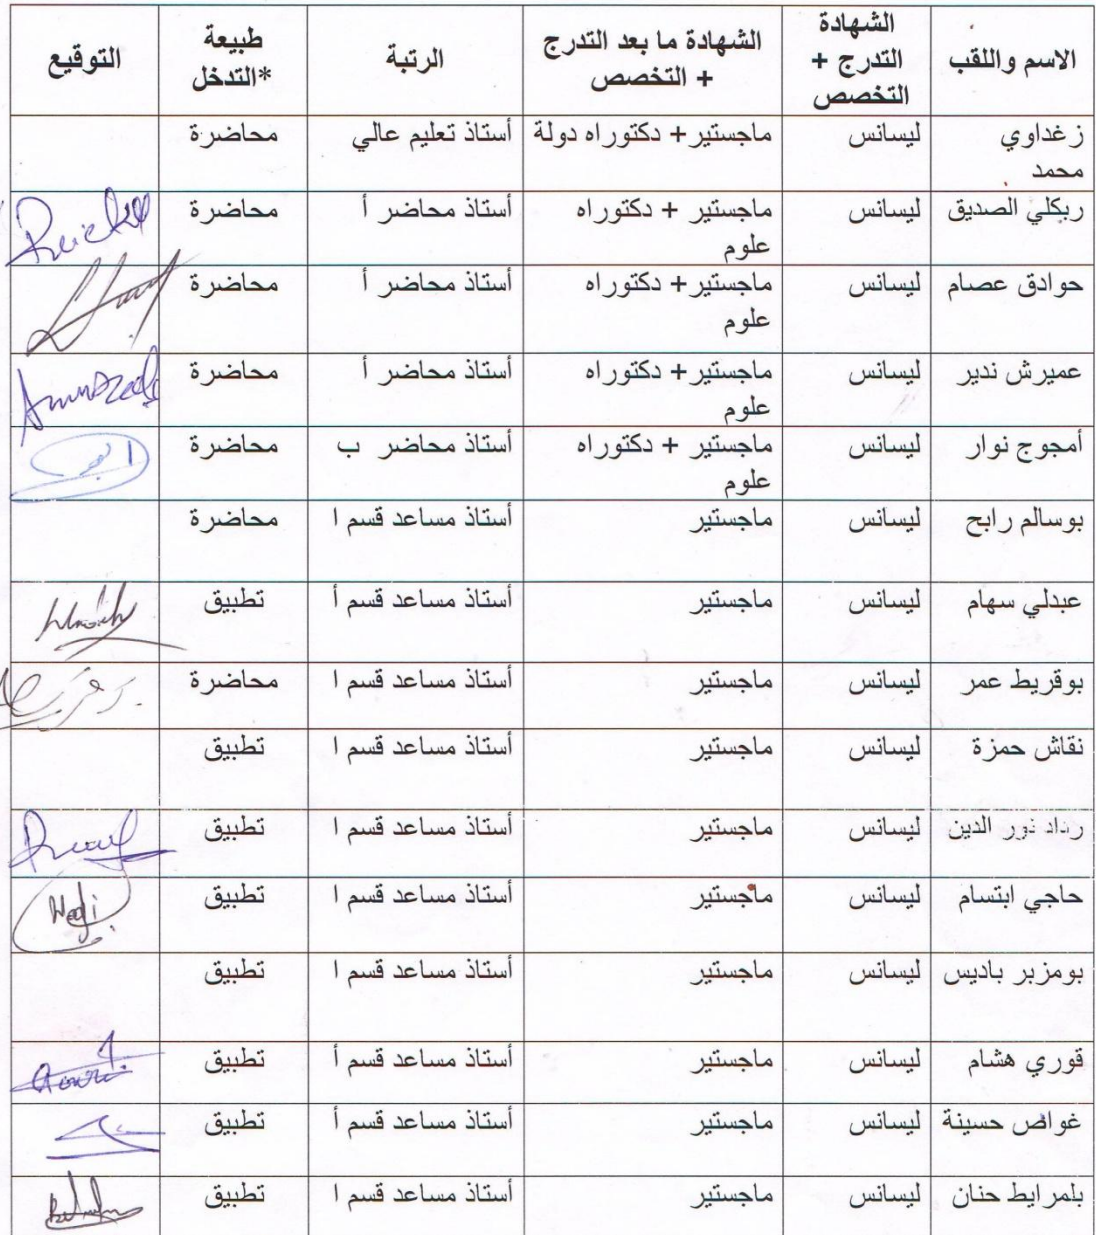 الاسم واللقب الشهادة التدرج + التخصص الشهادة ما بعد التدرج + التخصص الرتبة طبيعة التدخل* التوقيع
زغداوي محمد ليسانس ماجستير+ دكتوراه دولة أستاذ تعليم عالي محاضرة
ربكلي الصديق ليسانس ماجستير + دكتوراه علوم أستاذ محاضر أ محاضرة
حوادق عصام ليسانس ماجستير+ دكتوراه علوم أستاذ محاضر أ محاضرة
عميرش ندير ليسانس ماجستير+ دكتوراه علوم أستاذ محاضر أ محاضرة
أمجوج نوار ليسانس ماجستير + دكتوراه علوم أستاذ محاضر ب محاضرة
بوسالم رابح ليسانس ماجستير أستاذ مساعد قسم ا محاضرة
عبدلي سهام ليسانس ماجستير أستاذ مساعد قسم أ تطبيق
بوقريط عمر ليسانس ماجستير أستاذ مساعد قسم ا محاضرة
نقاش حمزة ليسانس ماجستير أستاذ مساعد قسم ا تطبيق
رداد نور الدين ليسانس ماجستير أستاذ مساعد قسم ا تطبيق
حاجي ابتسام ليسانس ماجستير أستاذ مساعد قسم ا تطبيق Hadji
بومزبر باديس ليسانس ماجستير أستاذ مساعد قسم ا تطبيق
قوري هشام ليسانس ماجستير أستاذ مساعد قسم أ تطبيق
غواص حسينة ليسانس ماجستير أستاذ مساعد قسم أ تطبيق
بلمرابط حنان ليسانس ماجستير أستاذ مساعد قسم ا تطبيق